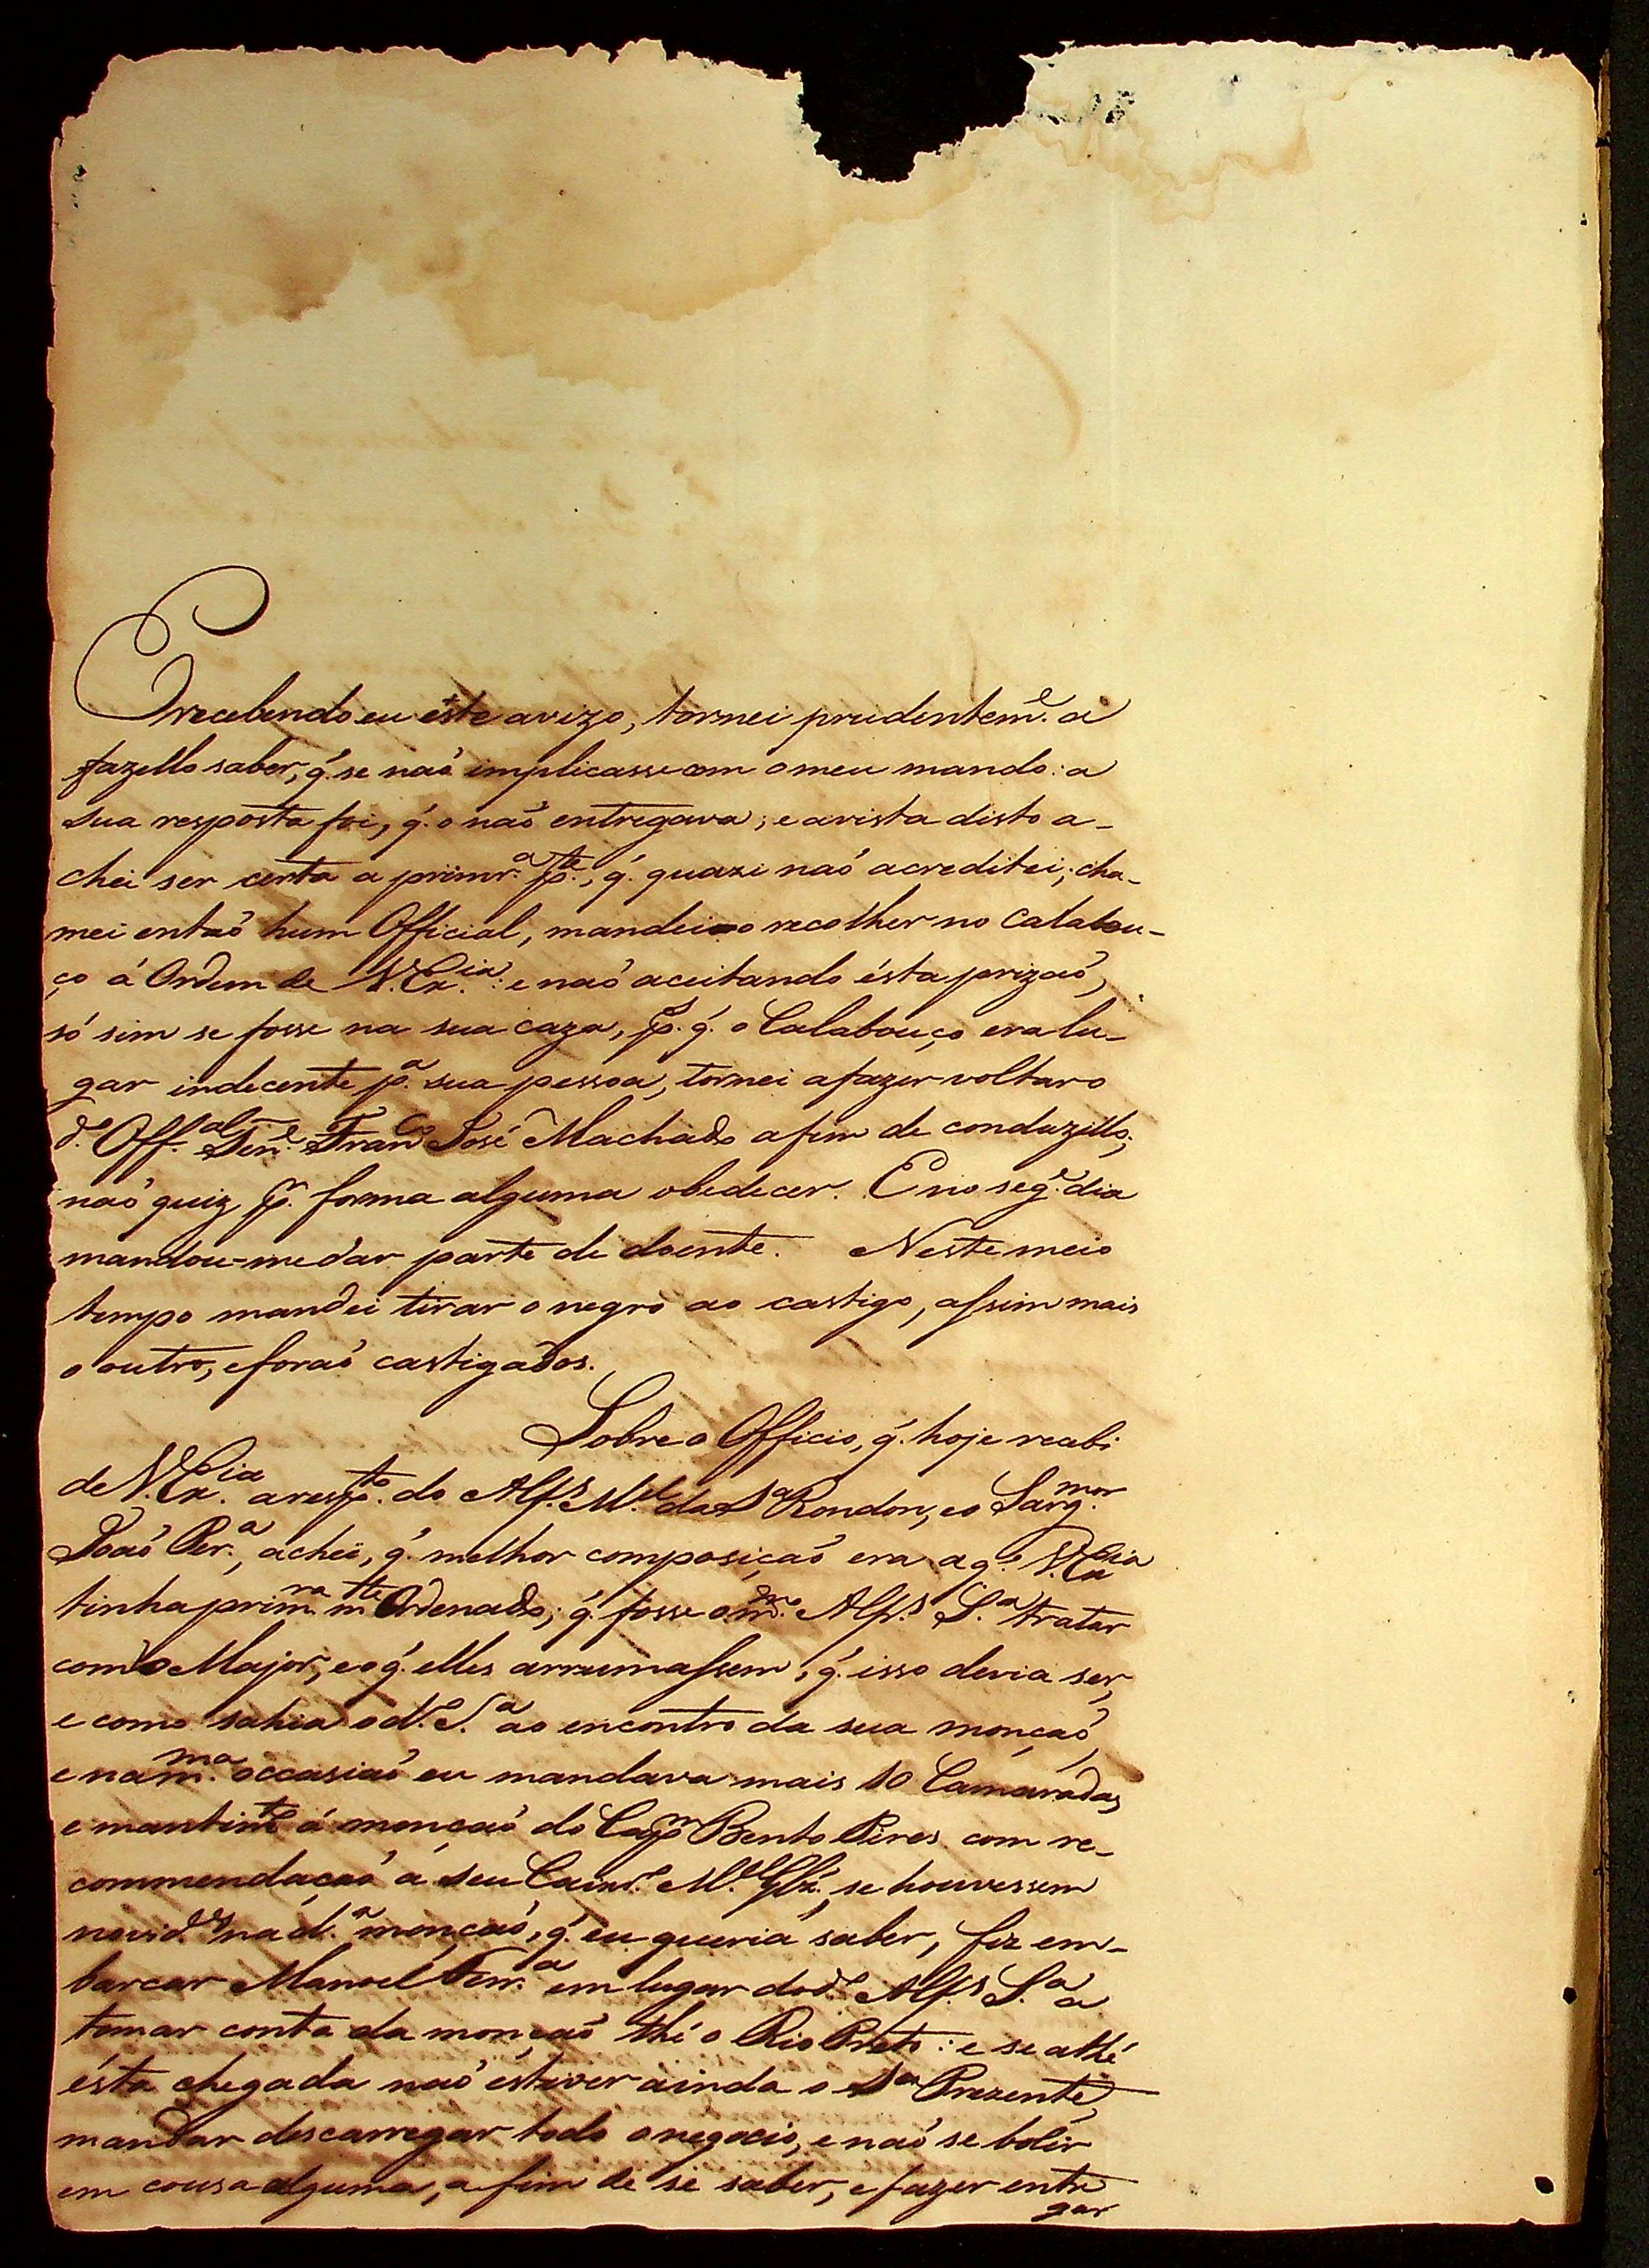 E recebendo eu este avizo, tornei prudentem.e a
fazello saber, q̃. se naõ implicasse com o meu mando: a
sua resposta foi, q̃. o naõ entregava; e avista disto a-
chei ser certa a primr.a p.te, q̃. quazi naõ acreditei; cha-
mei entaõ hum Official, mandei-o recolher no Calabou-
ço á Ordem de V. Ex.cia: e naõ aceitando ésta prizaõ,
só sim se fosse na sua caza, p. q̃. o Calabouço era lu-
gar indecente p.a sua pessoa, tornei afazer voltar o
d.o Off.al Ten.e Fran.co José Machado afim de conduzillo;
naõ quiz p.r forma alguma obedecer. E no seg.e dia
mandou-me dar parte de doente. Neste meio
tempo mandei tirar o negro ao castigo, assim mais
o outro, e foraõ castigados.
Sobre o Officio, q̃. hoje recebi
de V. Ex.cia a resp.to do Alf.s M.el da S.a Rondon, e o Sarg.mor
Joaõ Per.a, achei, q̃. melhor composiçaõ era a q.e V. Ex.cia
tinha prim.ra m.te Ordenado; q̃. fosse o m.mo Alf.s S.a tratar
com o Major, e o q̃. elles arrumassem, q̃. isso devia ser,
e como sahia o d.o S.a ao encontro da sua monçaõ,
e na m.ma occasiaõ eu mandava mais 10 Camaradas,
e mantim.to á monçaõ do Cap.m Bento Pires com re-
commendaçaõ á seu Caix.o M.el Glz., se houvessem
novid.es na d.a monçaõ, q̃. eu queria saber, fiz em-
barcar Manoel Ferr.a em lugar do d.o Alf.s S.a a
tomar conta da monçaõ thé o Rio Preto: e se athé
ésta chegada naõ éstiver ainda o S.a Prezente,
mandar descarregar todo o negocio, e naõ se bolir
em cousa alguma, a fim de se saber, e fazer entre
gar